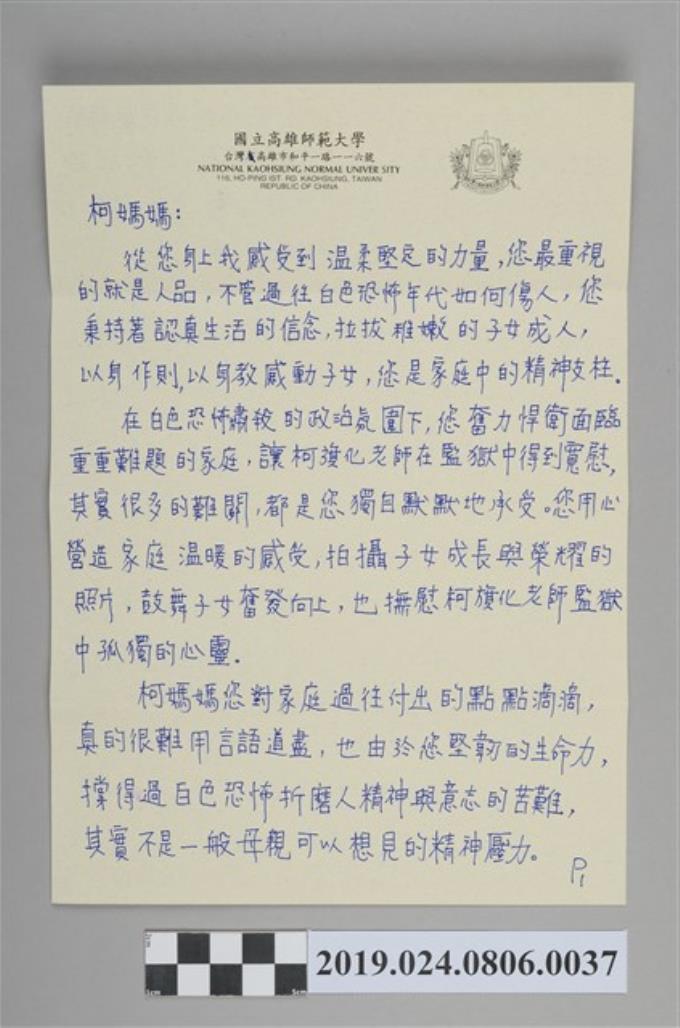 國立高雄師範大學
高雄市和平一路一一六號
NATIONAL KAOHSIUNG NORMAL UNIVER SITY
116, HO-PING IST. RD. KAOHSIUNG, TAIWAN
REPUBLIC OF CHINA
柯媽媽：
從您身上我感受到溫柔堅定的力量，您最重視
的就是人品，不管過往白色恐怖年代如何傷人，您
秉持著認真生活的信念，拉拔稚嫩的子女成人，
以身作則，以身教感動子女，您是家庭中的精神支柱。
在白色恐怖肅殺的政治氛圍下，您奮力悍衛面臨
重重難題的家庭，讓柯旗化老師在監獄中得到寬慰，
其實很多的難關，都是您獨自默默地承受。您用心
營造家庭溫暖的感受，拍攝子女成長與榮耀的
照片，鼓舞子女奮發向上，也撫慰柯旗化老師監獄
中孤獨的心靈。
柯媽媽您對家庭過往付出的點點滴滴，
真的很難用言語道盡，也由於您堅韌的生命力，
撐得過白色恐怖折磨人精神與意志的苦難，
其實不是一般母親可以想見的精神壓力。
P1
2019.024.0806.0037
5cm
5cm